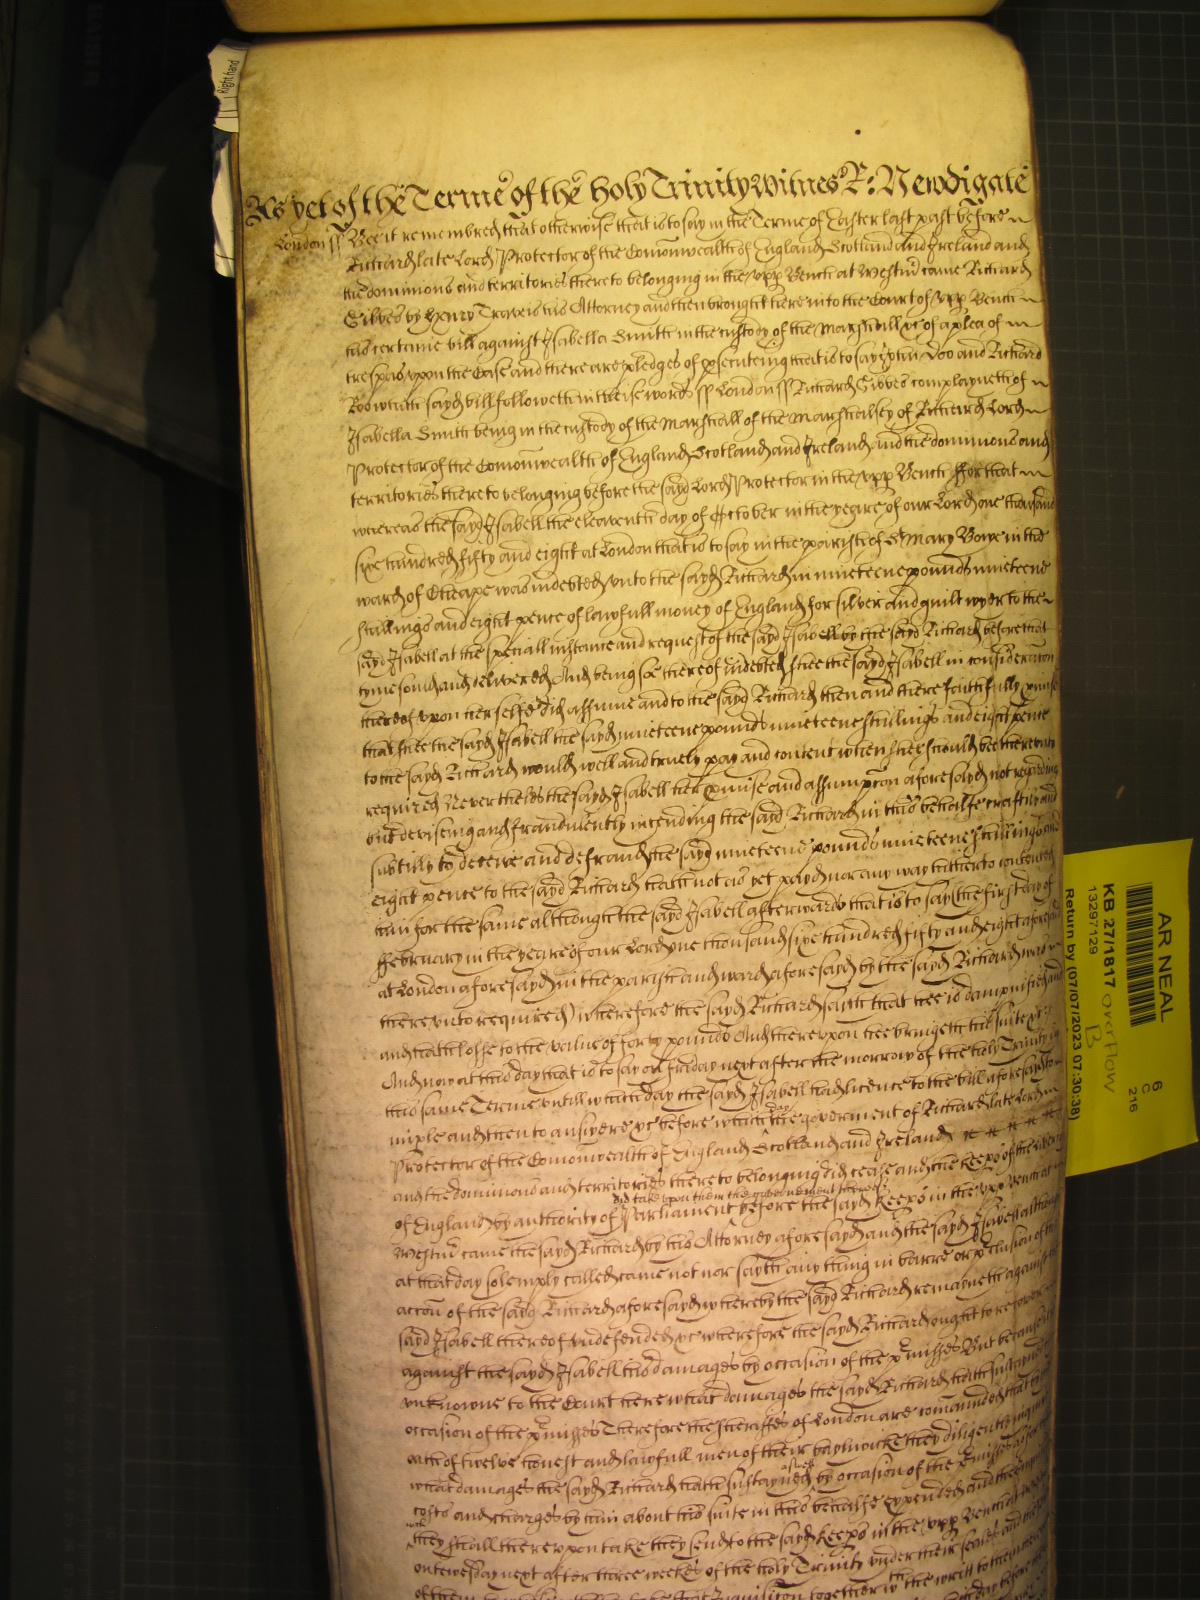 As yet of the Terme of the holy Trinity Witnes R: Newdigate
London ss Bee it remembred that otherwise that is to say in the Terme of Easter last past before
Richard late Lord Protector of the Comonwealth of England Scotland and Ireland and
the dominions and territories thereto belonging in the upp Bench at Westmr came Richard
Gibbes by Henry Travers his Attorney and then brought here into the Court of upp Bench
his certaine bill against Isabella Smith in the custody of the Marshall &c of a plea of
trespas upon the Case and there are pledges of psecuteing that is to say John Doo and Richard
Roo which sayd bill followeth in theise words ss London ss Richard Gibbes complayneth of
Isabella Smith being in the custody of the Marshall of the Marshalsey of Richard Lord
Protector of the Comonwealth of England Scotland and Ireland and the dominions and
territories thereto belonging before the sayd Lord Protector in the upp Bench ffor that
whereas the sayd Isabell the eleaventh day of October in the yeare of our Lord one thousand
sixe hundred fifty and eight at London that is to say in the parish of St Mary Bowe in the
ward of Cheape was indebted unto the sayd Richard in nineteene pounds nineteene
shillings and eight pence of lawfull money of England for silver and guilt wyer to the
sayd Isabell at the speciall instance and request of the sayd Isabell by the sayd Richard before that
tyme sould and delivered And being soe thereof indebted shee the sayd Isabell in consideracon
thereof upon her selfe did assume and to the sayd Richard then and there faithfully pmise
that shee the sayd Isabell the sayd nineteene pounds nineteene shillings and eight pence
to the sayd Richard would well and truely pay and content when shee should bee thereunto
required Neverthelesse the sayd Isabell her pmise and assumpcon aforesayd not regarding
but deviseing and fraudulently intending the said Richard in this behalfe craftily and
subtilly to deceive and defraud the sayd nineteene pounds nineteene shillings and
eight pence to the sayd Richard hath not as yet payd nor any way hitherto contented
him for the same although the sayd Isabell afterwards that is to say (the first day of
ffebruary in the yeare of our Lord one thousand sixe hundred fifty and eight aforesaid
at London aforesayd in the parish and ward aforesayd by the sayd Richard was
thereunto required) wherefore the sayd Richard saith that hee is dampnified and
and hath losse to the value of forty pounds And thereupon hee bringeth his suite &c
And now at this day that is to say on Friday next after the morrow of the holy Trinity in
this same Terme untill which day the sayd Isabell had licence to the bill aforesayd to
imple and then to answere &c before which day the goverment of Richard late Lord
Protector of the Comonwealth of England Scotland and Ireland
and the dominions and territories thereto belonging did cease and the keeps of the liberty
of England by authority of Parliament did take upon them the government thereof before the sayd keeps in the upp Bench at
Westmr came the sayd Richard by his Attorney aforesayd and the sayd Isabell although
at that day solemply called came not nor sayth any thing in barre or pclusion of the
accon of the sayd Richard aforesayd whereby the sayd Richard remayneth against the
sayd Isabell thereof undefended &c wherefore the sayd Richard ought to recover
against the sayd Isabell his damages by occasion of the pmisses But because it
unknowne to the Court here what damages the sayd Richard hath sustayned by
occasion of the pmisses Therefore the sheriffes of London are comanded that by
oath of twelve honest and lawfull men of their bayliwicke they diligently inquire
what damages the sayd Richard hath sustayned aswell by occasion of the pmisses as for
costs and charges by him about his suite in this behalfe expended and the
wch they shall thereupon take they send to the sayd keeps in the upp Bench at
on tewesday next after three weekes of the holy Trinity under their seales and
of them
Inquisicon together wth the writt to them
Right hand
AR NEAL
KB 27/1817 overflow
B
13297129
Return by (07/07/2023 07:30:38)
6
C
216